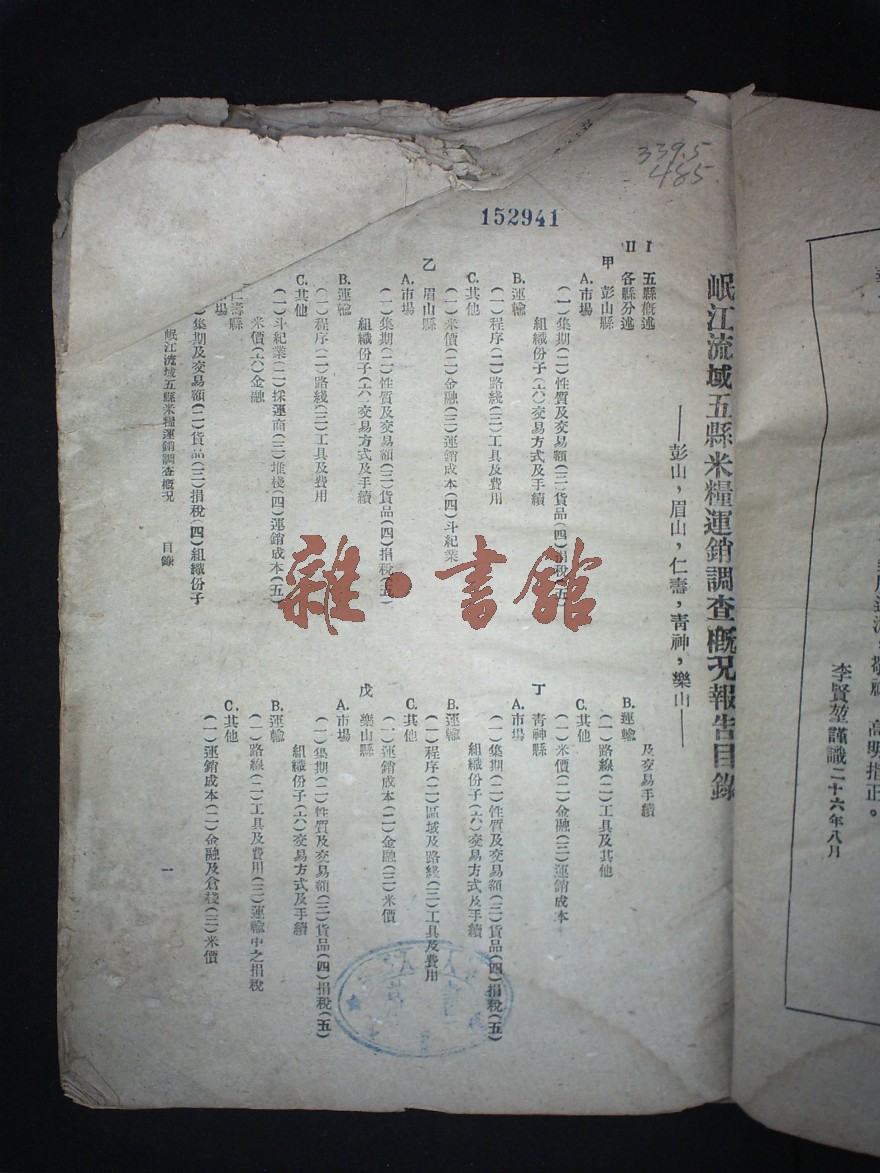 339.5
485
152941
岷江流域五縣米糧運銷調查概況報告目錄
——彭山，眉山，仁壽，青神，樂山——
I 五縣概述
II 各縣分述
甲 彭山縣
A.市場
(一)集期(二)性質及交易額(三)貨品(四)捐稅(五)
組織份子(六)交易方式及手續
B.運輸
(一)程序(二)路綫(三)工具及費用
C.其他
(一)米價(二)金融(三)運銷成本(四)斗紀業
乙 眉山縣
A.市場
(一)集期(二)性質及交易額(三)貨品(四)捐稅(五)
組織份子(六)交易方式及手續
B.運輸
(一)程序(二)路綫(三)工具及費用
C.其他
(一)斗紀業(二)採運商(三)堆棧(四)運銷成本(五)
米價(六)金融
仁壽縣
場
集期及交易額(二)貨品(三)捐稅(四)組織份子
及交易手續
B.運輸
(一)路線(二)工具及其他
C.其他
(一)米價(二)金融(三)運銷成本
丁 青神縣
A.市場
(一)集期(二)性質及交易額(三)貨品(四)捐稅(五)
組織份子(六)交易方式及手續
B.運輸
(一)程序(二)區域及路綫(三)工具及費用
C.其他
(一)運銷成本(二)金融(三)米價
戊 樂山縣
A.市場
(一)集期(二)性質及交易額(三)貨品(四)捐稅(五)
組織份子(六)交易方式及手續
B.運輸
(一)路線(二)工具及費用(三)運輸中之捐稅
C.其他
(一)運銷成本(二)金融及倉棧(三)米價
岷江流域五縣米糧運銷調查概況 目錄 一
高明指正。
李賢堃謹識二十六年八月
雜·書館